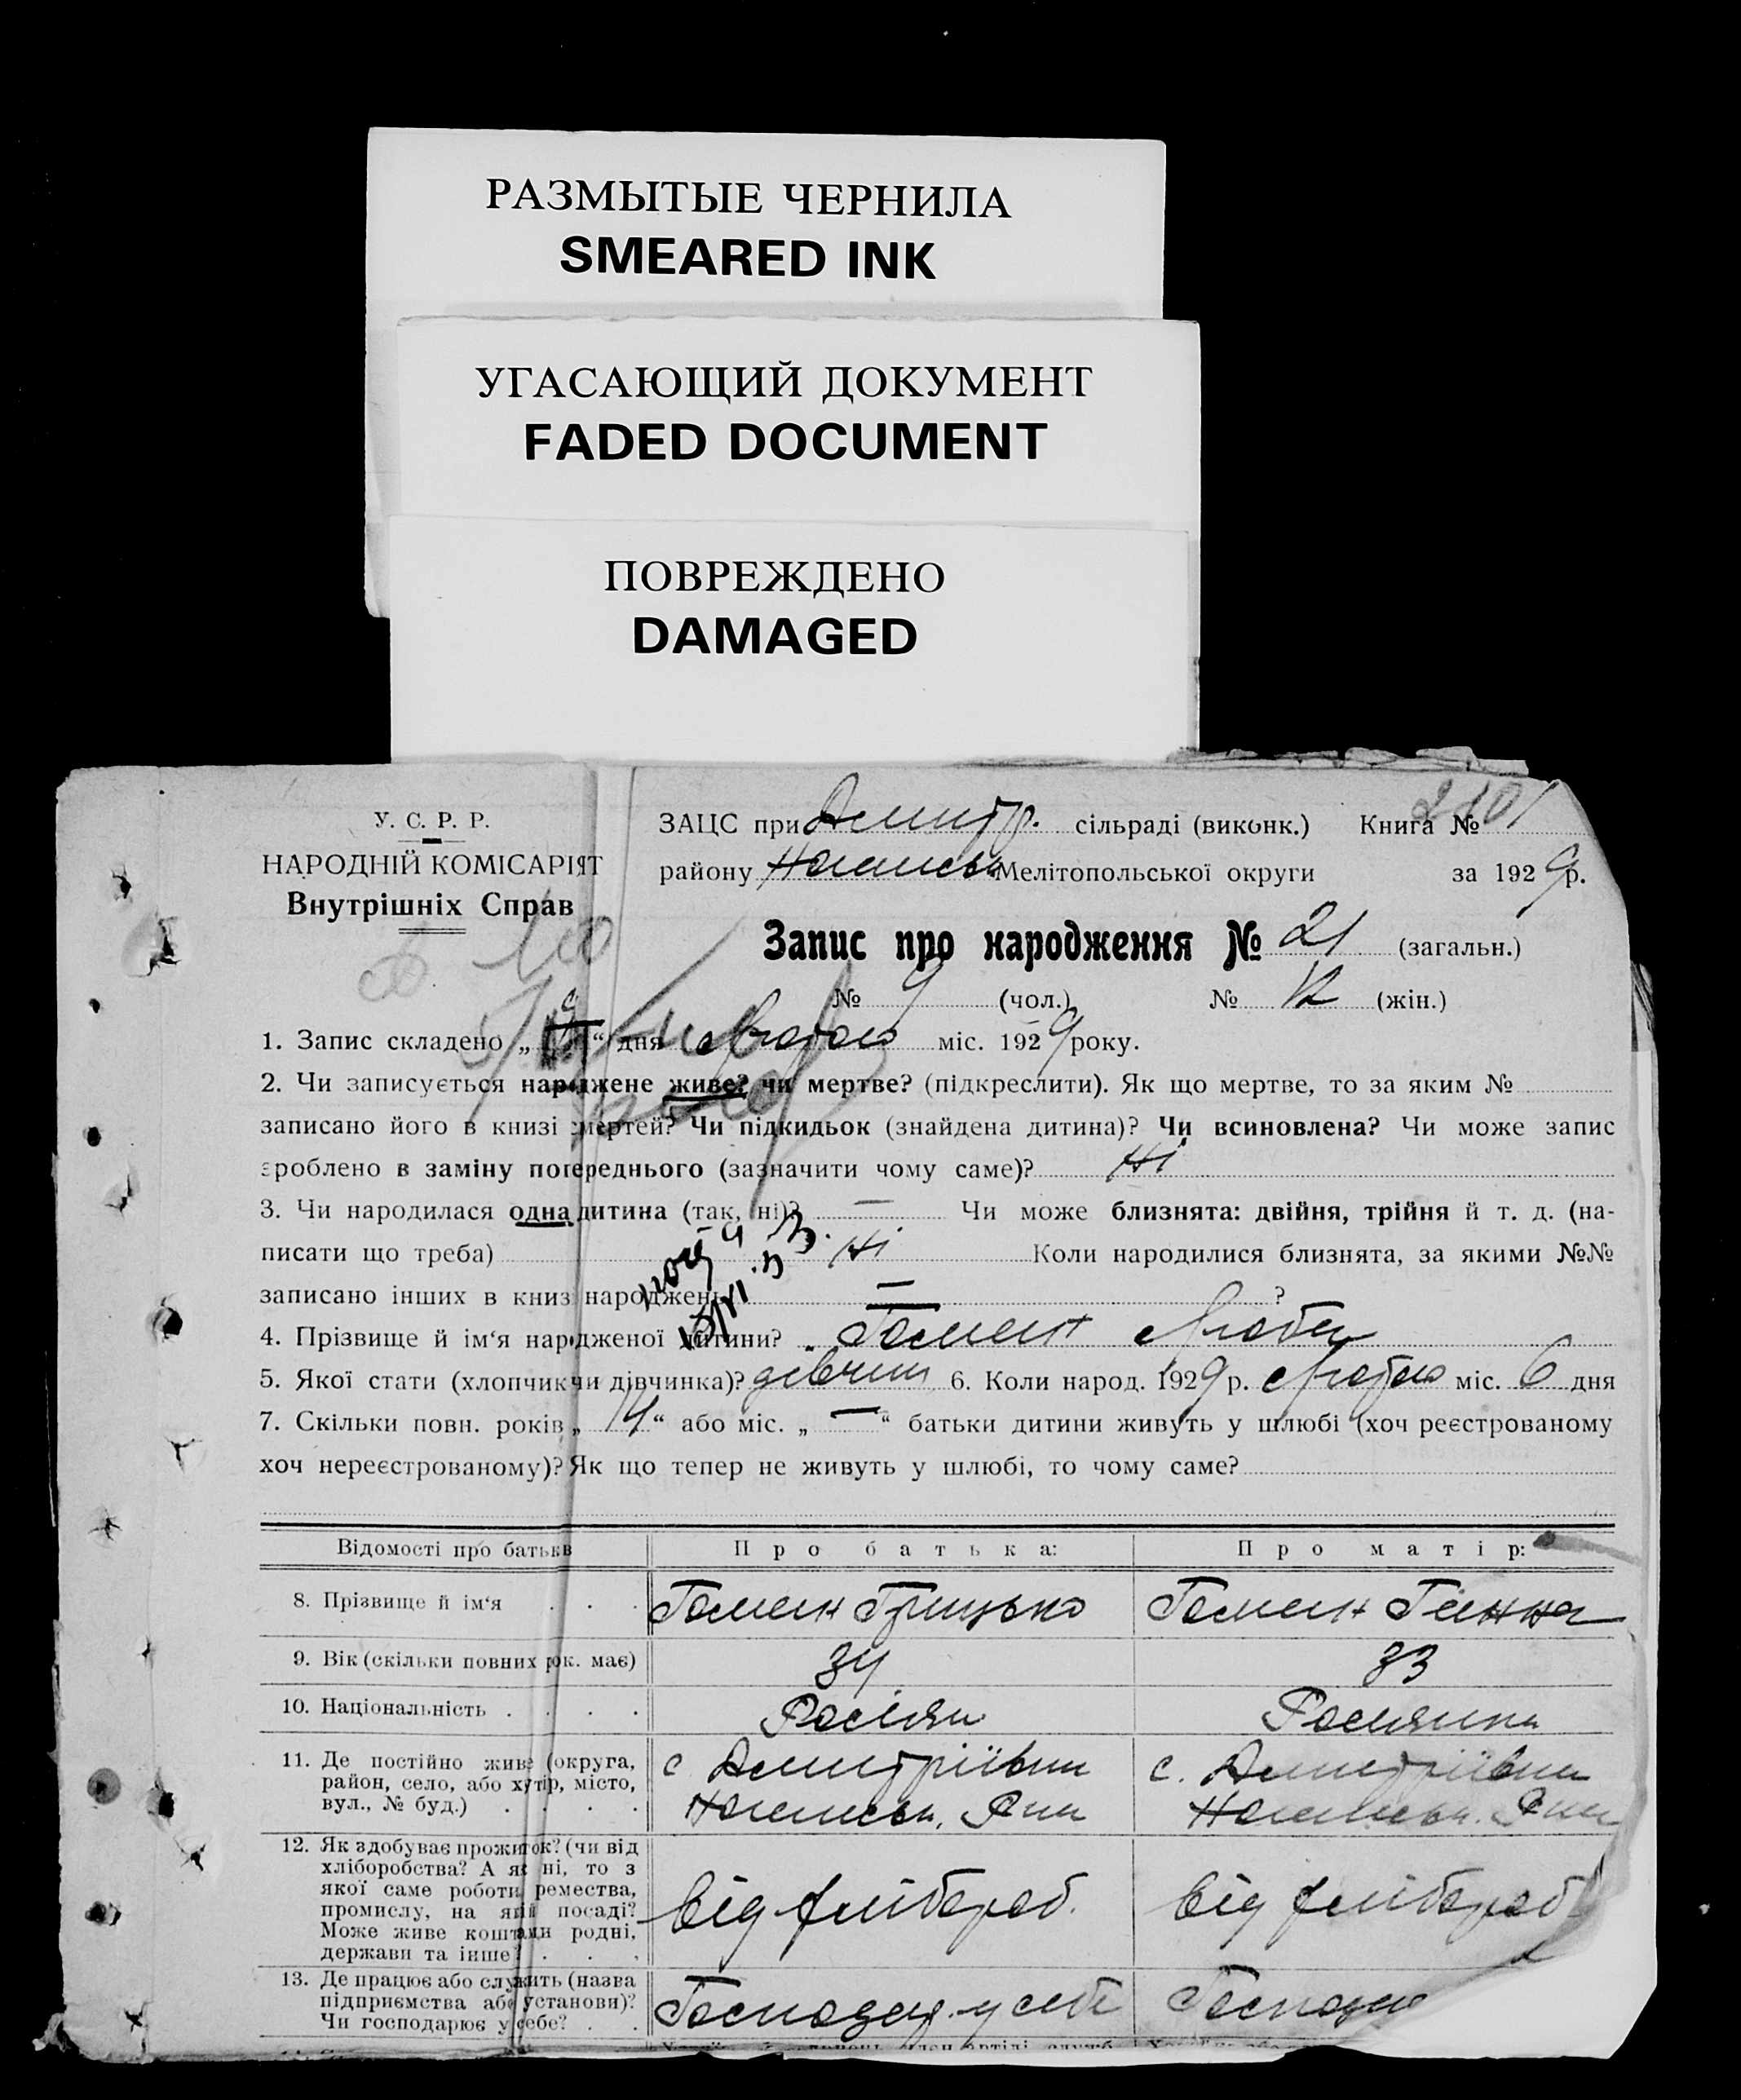 РАЗМЫТЫЕ ЧЕРНИЛА
SMEARED INK
УГАСАЮЩИЙ ДОКУМЕНТ
FADED DOCUMENT
ПОВРЕЖДЕНО
DAMAGED
У. С. Р. Р.
НАРОДНІЙ КОМІСАРІЯТ
Внутрішніх Справ
ЗАЦС при Дмитр. сільраді (виконк.) Книга №
району Мелітопольської округи за 1929 р.
Запис про народження № 21 (загальн.)
№ 9 (чол.) № 12 (жін.)
1. Запис складено „ 9 “ дня Лютого міс. 1929 року.
2. Чи записується народжене живе? чи мертве? (підкреслити). Як що мертве, то за яким №
записано його в книзі смертей? Чи підкидьок (знайдена дитина)? Чи всиновлена? Чи може запис
зроблено в заміну попереднього (зазначити чому саме)? Ні
3. Чи народилася одна дитина (так, ні)? — Чи може близнята: двійня, трійня й т. д. (на-
писати що треба) Ні Коли народилися близнята, за якими №№
записано інших в книзі народжень — ?
4. Прізвище й ім‘я народженої дитини? Гамен Люба
5. Якої стати (хлопчик чи дівчинка)? дівчин 6. Коли народ. 1929 р. Лютого міс. 6 дня
7. Скільки повн. років „ 14 “ або міс. „ — “ батьки дитини живуть у шлюбі (хоч реєстрованому
хоч нереєстрованому)? Як що тепер не живуть у шлюбі, то чому саме?
Відомості про батьків Про батька: Про матір:
8. Прізвище й ім‘я . . . Гамен Грицько Гамен Ганна
9. Вік (скільки повних рок. має) 34 33
10. Національність . . . . Росіян Росиянка
11. Де постійно живе (округа,
район, село, або хутір, місто,
вул., № буд.) . . . .
с Дмитріївки
с. Дмитріївки
12. Як здобуває прожиток? (чи від
хліборобства? А як ні, то з
якої саме роботи, ремества,
промислу, на якій посаді?
Може живе коштами родні,
держави та інше? . . .
Від хлібороб. Від хлібороб
13. Де працює або служить (назва
підприємства або установи)?
Чи господарює у себе? . .
Господар. у себе Господар